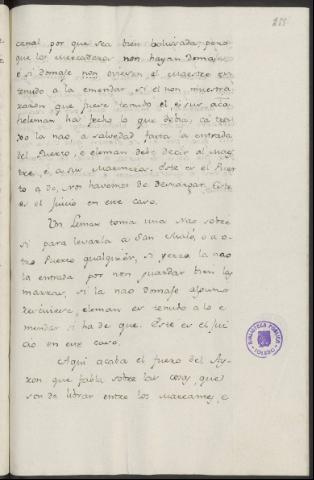 255
cenal, por que sea bien balisada, porq
que los mercaderes non hayan domaje,
e si domaje non ovieren el Maestro es
tenudo a la emendar, si el non muestra
razon que fuese tenudo el e sus aca,
eleman hai fecho lo que debia, ca tra
xo la nao a salvedad fasta la entrada
del Puerto, e eleman debe decir al Mae
tre, e, a sus Marineros. Este es el Puer
to a do, nos havemos de descargar. Este
es el Juicio en este caso.
Un Leman toma una Nao sobre
si para levarla a San Maló, o a o
tro Puerto qualquier, si pereza la nao
la entrada por non guardar bien las
marcas, si la nao domaje alguno
rescibiere, eleman es tenudo a lo e
mendar si ha de que. Este es el Jui
cio en este caso.
Aqui acaba el fuero del Ay-
ron que fabla sobre las cosas, que
son de librar entre los Mareantes, e
BIBLIOTECA PUBLICA
TOLEDO